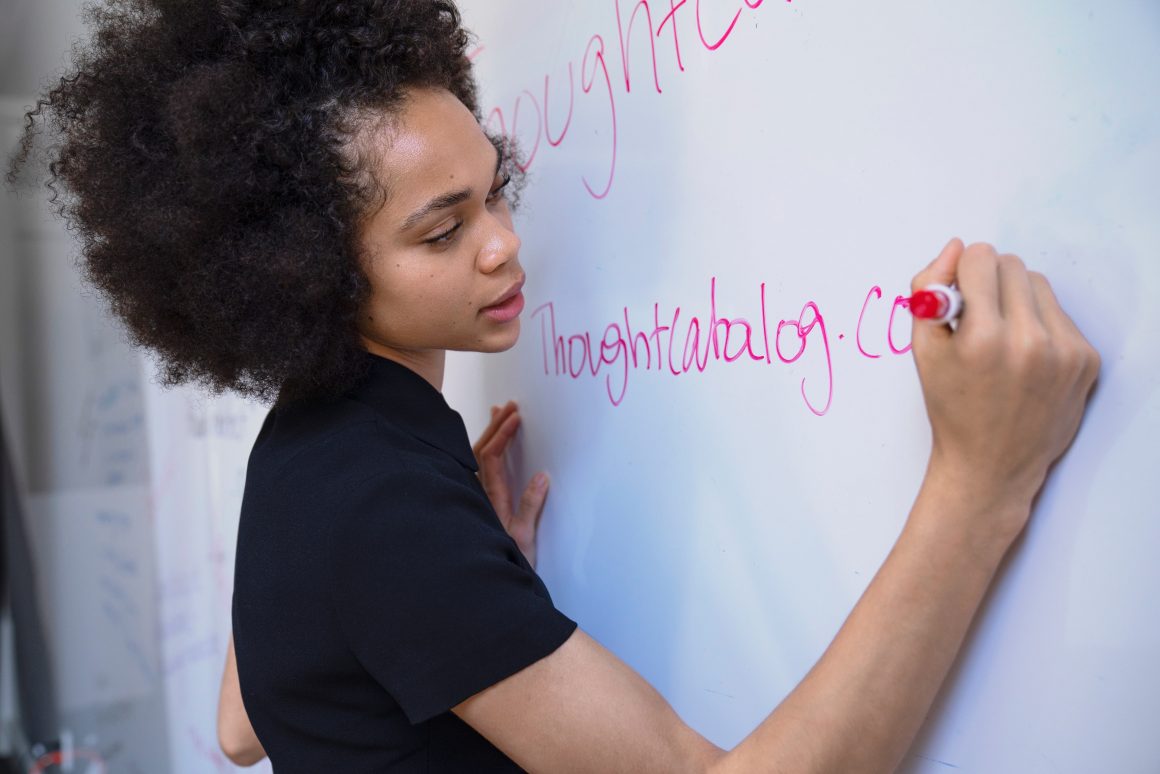 ThoughtC
Thoughtcatalog.co